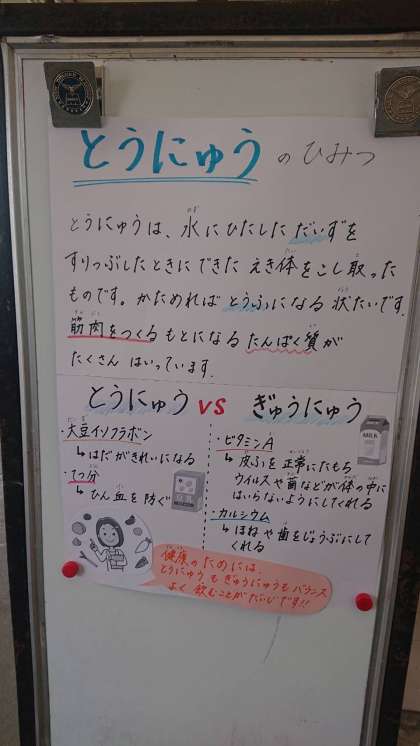 とうにゅうのひみつ
とうにゅうは、水にひたしただいずを
すりつぶしたときにできたえき体をこし取った
ものです。かためればとうふになる状たいです。
筋肉をつくるもとになるたんぱく質が
たくさんはいっています。
とうにゅう vs ぎゅうにゅう
・大豆イソフラボン
↳はだがきれいになる
・てつ分
↳ひん血を防ぐ
・ビタミンA
↳皮ふを正常にたもち
ウイルスや菌などが体の中に
はいらないようにしてくれる
・カルシウム
↳ほねや歯をじょうぶにして
くれる
MILK
健康のためには、
とうにゅうもぎゅうにゅうもバランス
よく飲むことがだいじです!!